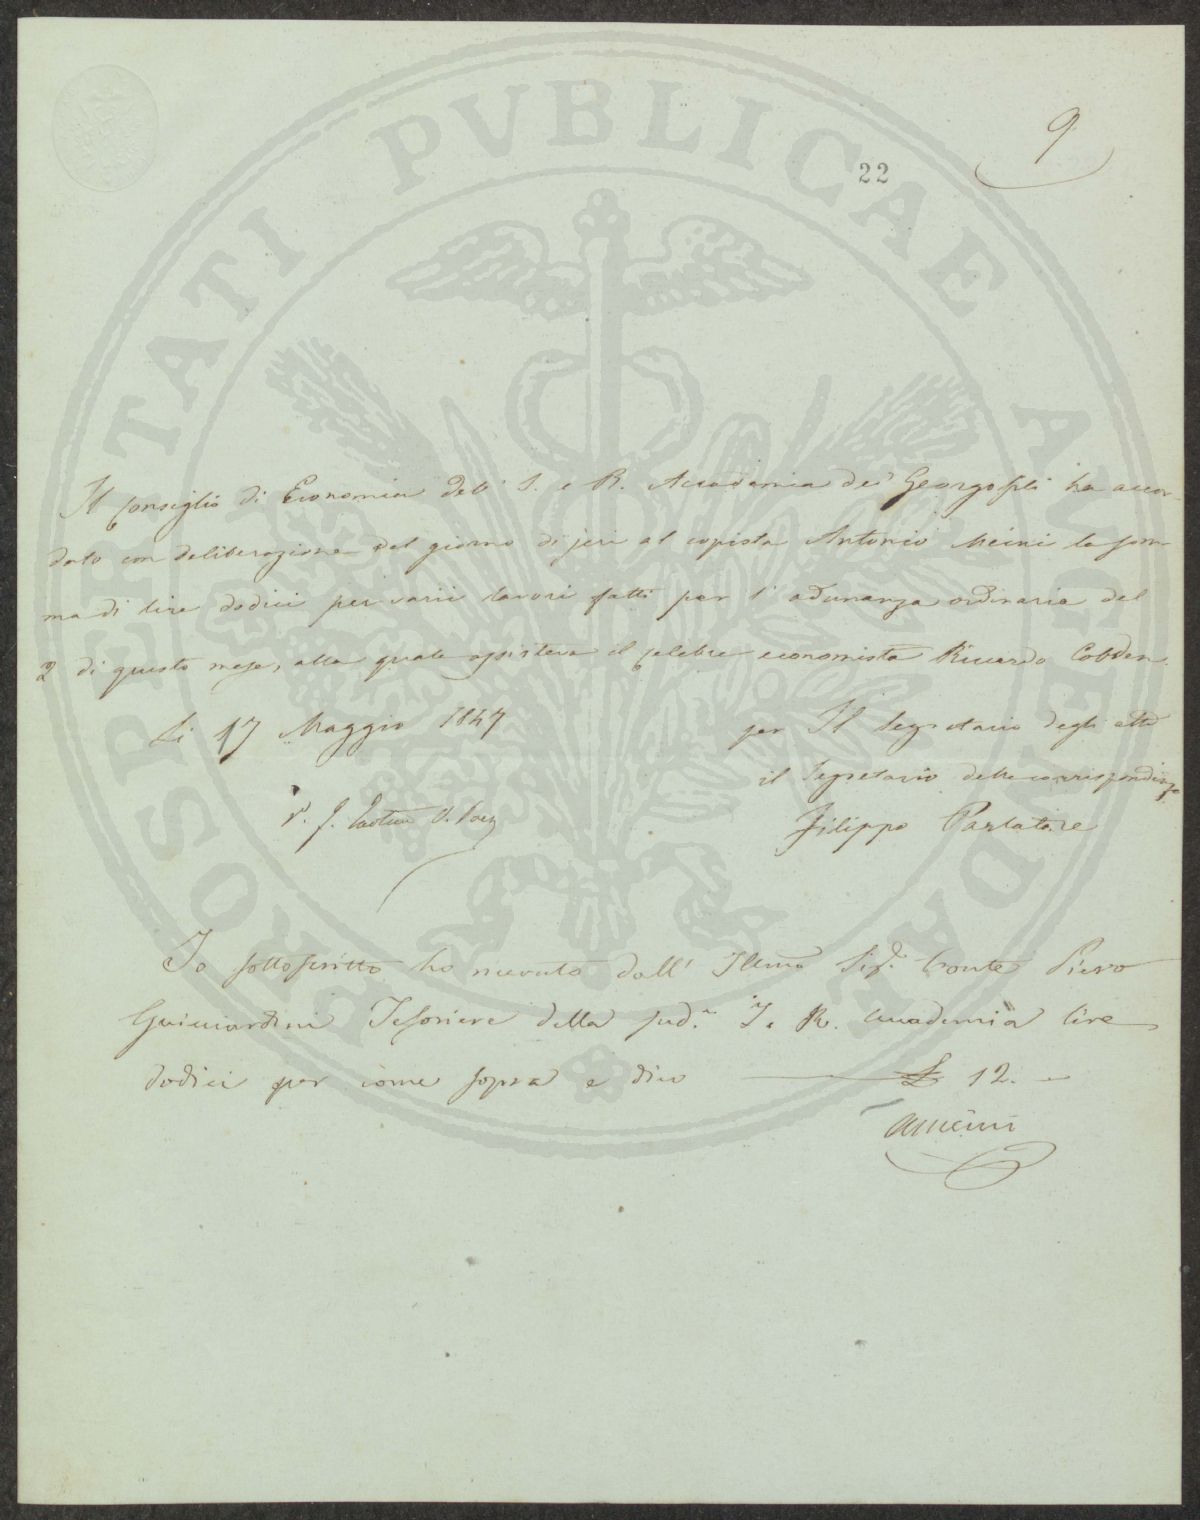 PROSPERITATI PVBLICAE AVGENDAE
9
22
Il Consiglio di Economia dell' I. e R. Accademia de' Georgofili ha accor-
dato con deliberazione del giorno di jeri al copista Antonio Meini la som-
ma di lire dodici per varii lavori fatti per l' adunanza ordinaria del
2 di questo mese, alla quale assisteva il celebre economista Riccardo Cobden.
Li 17 Maggio 1847
per Il Segretario degli atti
il Segretario delle corrispondenze
Filippo Parlatore
Io sottoscritto ho ricevuto dall' Illmo Sigr. Conte Piero
Guicciardini Tesoriere della sud.a I. e R. Accademia lire
dodici per come sopra e dico £ 12. -
AMeini